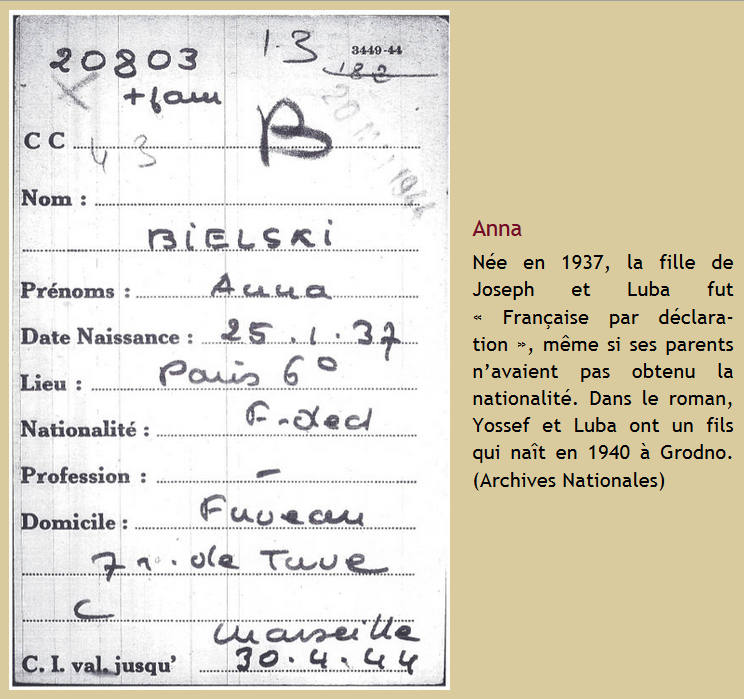 20803
13
3449-44
182
+ fam
20 MAI 1944
B
C C
43
Nom :
BIELSKI
Prénoms : Anna
Date Naissance : 25.1.37
Lieu : Paris 6°
Nationalité : F-decl
Profession : -
Domicile : Fuveau
7 r. de Tuve
C
Marseille
C. I. val. jusqu' 30.4.44
Anna
Née en 1937, la fille de
Joseph et Luba fut
« Française par déclara-
tion », même si ses parents
n’avaient pas obtenu la
nationalité. Dans le roman,
Yossef et Luba ont un fils
qui naît en 1940 à Grodno.
(Archives Nationales)